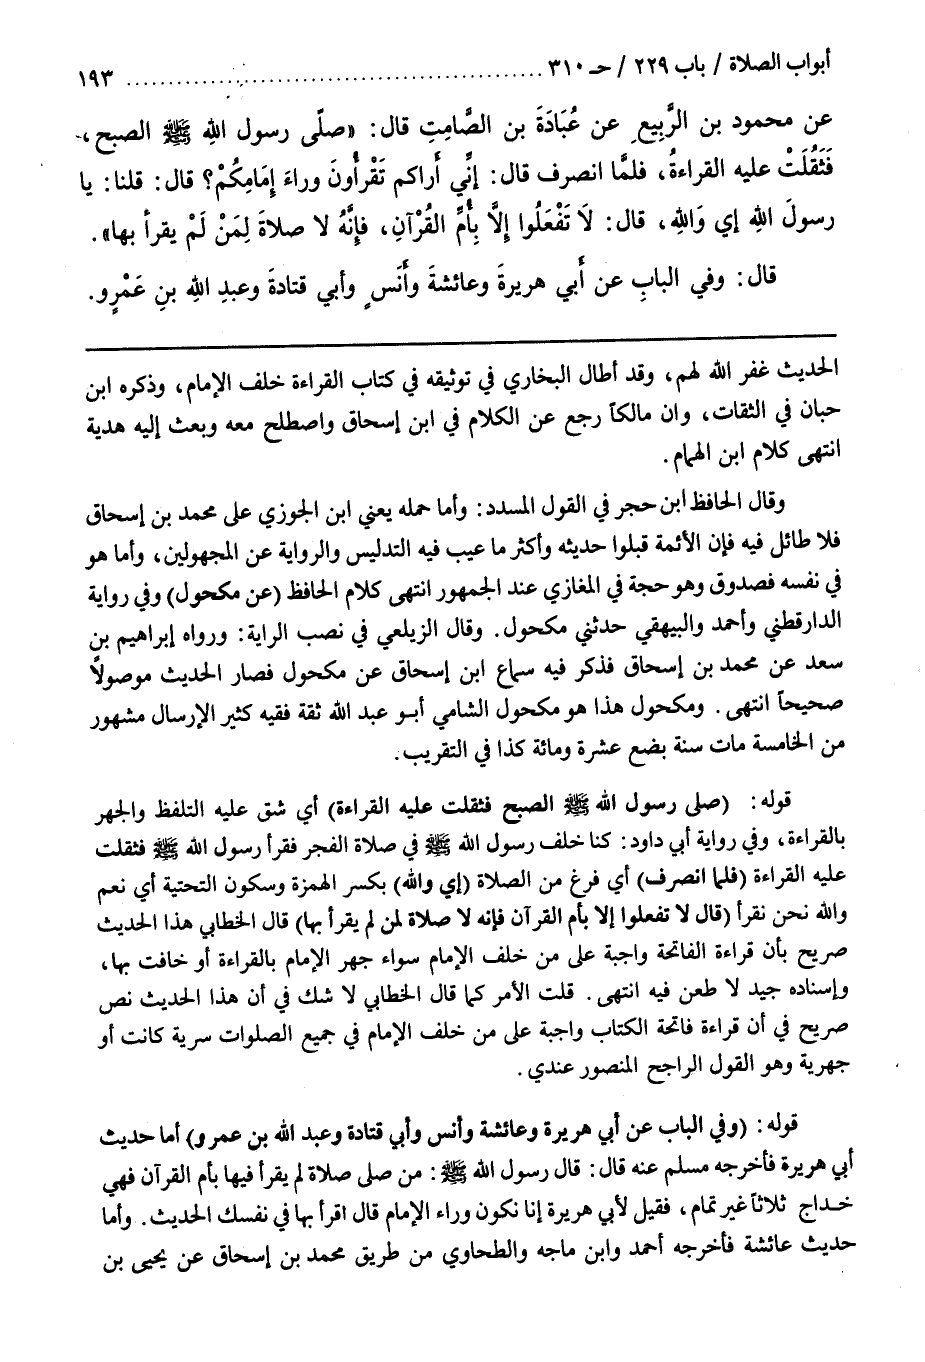 أبواب الصلاة / باب ٢٢٩ / حـ ٣١٠ ........................................ ١٩٣
عن محمود بن الرَّبِيعِ عن عُبَادَةَ بن الصَّامِتِ قال: «صلّى رسول اللهِ ﷺ الصبح،
فَثَقُلَتْ عليه القراءةُ، فلمَّا انصرف قال: إنِّي أَراكم تَقْرأُونَ وراءَ إمَامِكُمْ؟ قال: قلنا: يا
رسولَ اللهِ إي وَاللهِ، قال: لَا تَفْعَلُوا إلَّا بِأُمِّ القُرْآنِ، فإنَّهُ لا صلاةَ لِمَنْ لَمْ يقرأ بها».
قال: وفي البابِ عن أَبي هريرةَ وعائشةَ وأَنَسٍ وأبي قتادةَ وعبدِ اللهِ بنِ عَمْرٍو.
الحديث غفر الله لهم، وقد أطال البخاري في توثيقه في كتاب القراءة خلف الإمام، وذكره ابن
حبان في الثقات، وان مالكاً رجع عن الكلام في ابن إسحاق واصطلح معه وبعث إليه هدية
انتهى كلام ابن الهمام.
وقال الحافظ ابن حجر في القول المسدد: وأما حمله يعني ابن الجوزي على محمد بن إسحاق
فلا طائل فيه فإن الأئمة قبلوا حديثه وأكثر ما عيب فيه التدليس والرواية عن المجهولين، وأما هو
في نفسه فصدوق وهو حجة في المغازي عند الجمهور انتهى كلام الحافظ (عن مكحول) وفي رواية
الدارقطني وأحمد والبيهقي حدثني مكحول. وقال الزيلعي في نصب الراية: ورواه إبراهيم بن
سعد عن محمد بن إسحاق فذكر فيه سماع ابن إسحاق عن مكحول فصار الحديث موصولاً
صحيحاً انتهى. ومكحول هذا هو مكحول الشامي أبو عبد الله ثقة فقيه كثير الإرسال مشهور
من الخامسة مات سنة بضع عشرة ومائة كذا في التقريب.
قوله: (صلى رسول الله ﷺ الصبح فثقلت عليه القراءة) أي شق عليه التلفظ والجهر
بالقراءة، وفي رواية أبي داود: كنا خلف رسول الله ﷺ في صلاة الفجر فقرأ رسول الله ﷺ فثقلت
عليه القراءة (فلما انصرف) أي فرغ من الصلاة (إي والله) بكسر الهمزة وسكون التحتية أي نعم
والله نحن نقرأ (قال لا تفعلوا إلا بأم القرآن فإنه لا صلاة لمن لم يقرأ بها) قال الخطابي هذا الحديث
صريح بأن قراءة الفاتحة واجبة على من خلف الإمام سواء جهر الإمام بالقراءة أو خافت بها،
وإسناده جيد لا طعن فيه انتهى. قلت الأمر كما قال الخطابي لا شك في أن هذا الحديث نص
صريح في أن قراءة فاتحة الكتاب واجبة على من خلف الإمام في جميع الصلوات سرية كانت أو
جهرية وهو القول الراجح المنصور عندي.
قوله: (وفي الباب عن أبي هريرة وعائشة وأنس وأبي قتادة وعبد الله بن عمرو) أما حديث
أبي هريرة فأخرجه مسلم عنه قال: قال رسول الله ﷺ: من صلى صلاة لم يقرأ فيها بأم القرآن فهي
خداج ثلاثاً غير تمام، فقيل لأبي هريرة إنا نكون وراء الإمام قال اقرأ بها في نفسك الحديث. وأما
حديث عائشة فأخرجه أحمد وابن ماجه والطحاوي من طريق محمد بن إسحاق عن يحيى بن